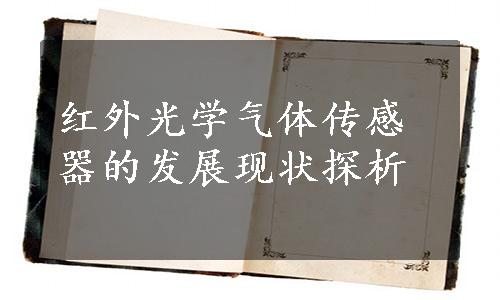 红外光学气体传感
器的发展现状探析